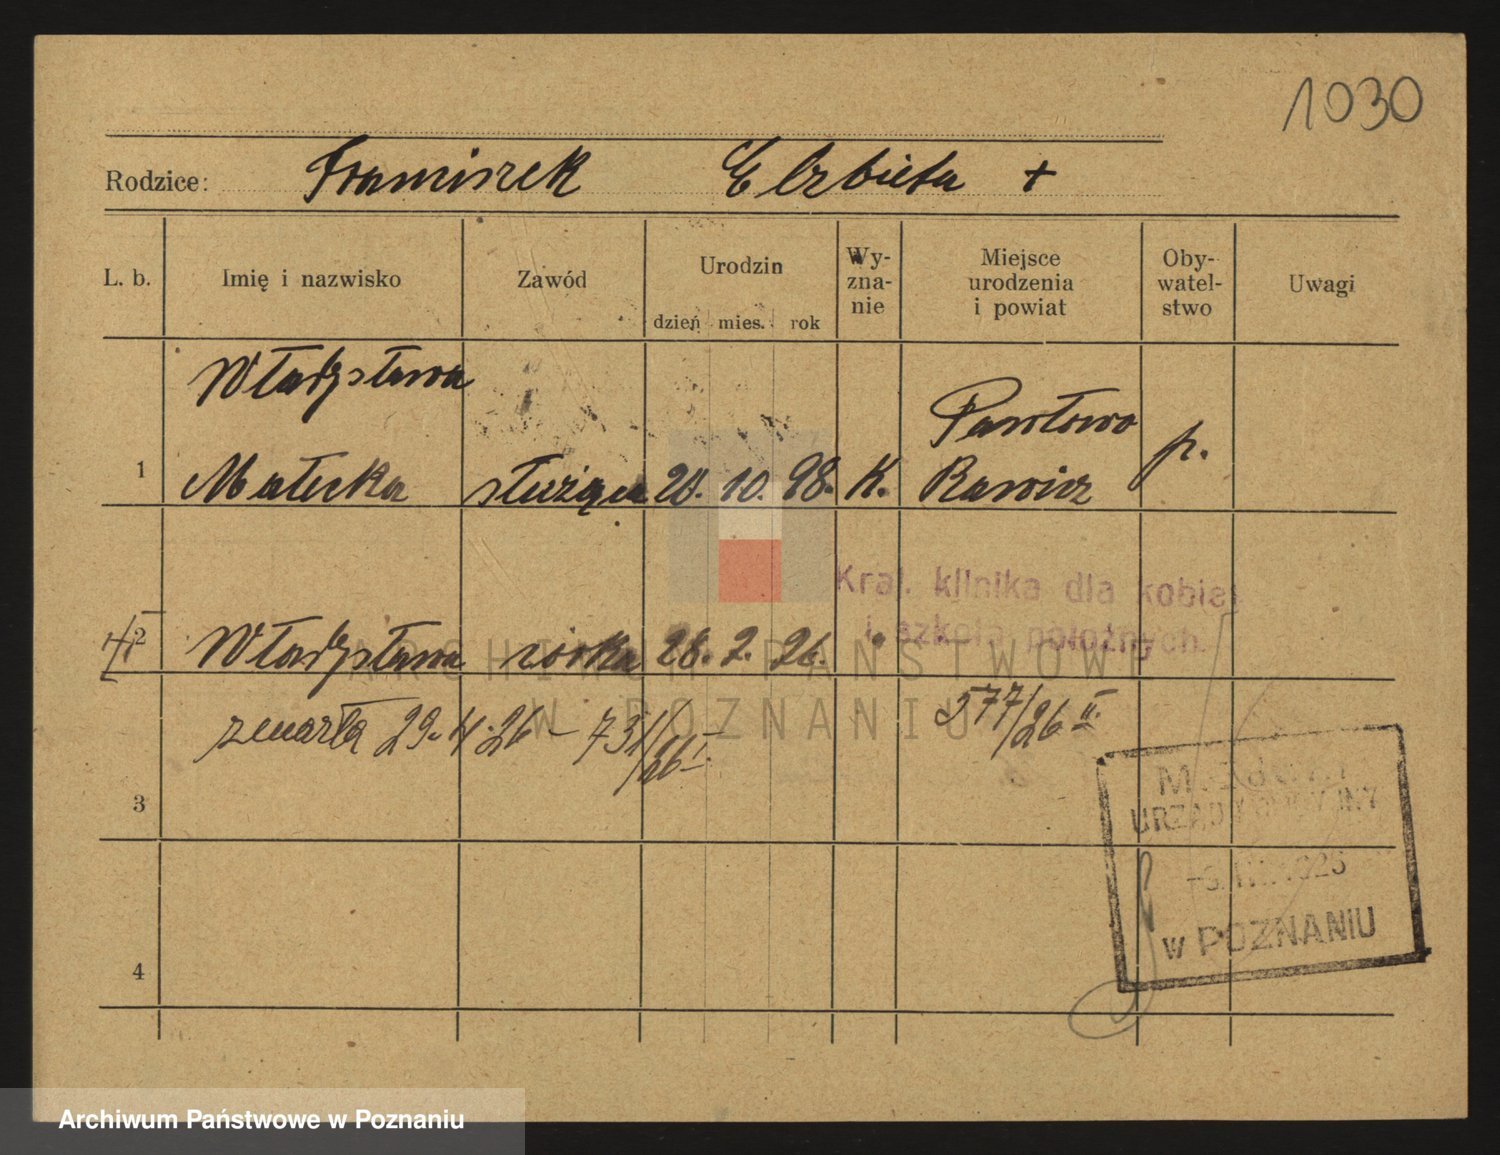 1030
Rodzice: Franciszek Elżbieta +
L. b. Imię i nazwisko Zawód Urodzin dzień mies. rok Wy-zna-nie Miejsce urodzenia i powiat Oby-watel-stwo Uwagi
Władysława Pawłowo
1 Małecka służąca 28. 10. 98. K. Rawicz p.
Kraj. klinika dla kobiet
i szkoła położnych.
2 Władysława córka 28. 2. 26. "
zmarła 29. 4. 26 – 731/26 I. 577/26 II.
3
URZĄD
w POZNANIU
4
ARCHIWUM PAŃSTWOWE
W POZNANIU
Archiwum Państwowe w Poznaniu